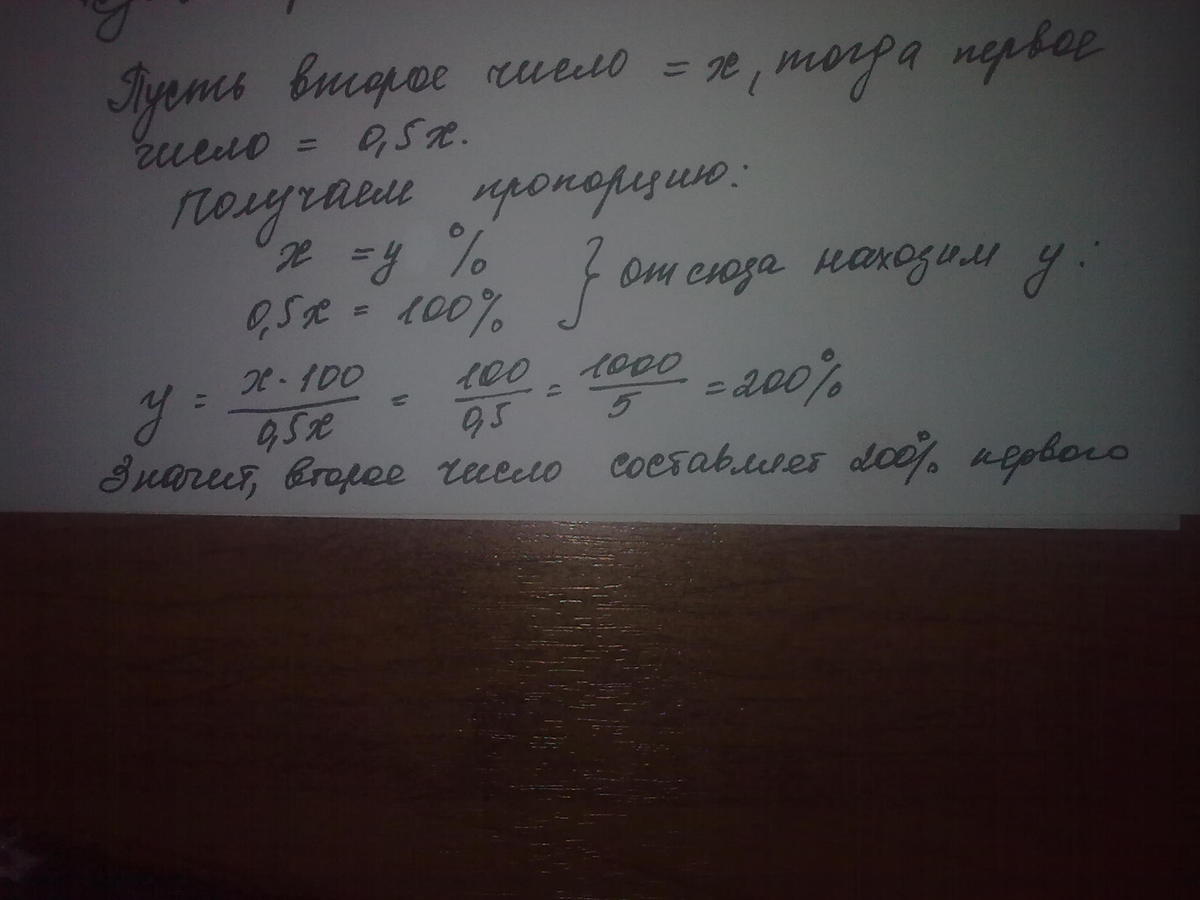 Пусть второе число = x, тогда первое
число = 0,5x.
Получаем пропорцию:
x = y %
0,5x = 100%
} отсюда находим y:
y = x · 100 / 0,5x = 100 / 0,5 = 1000 / 5 = 200%
Значит, второе число составляет 200% первого